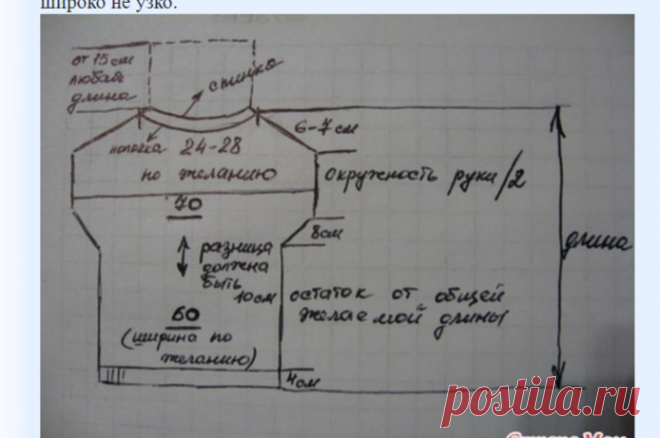 широко не узко.
от 15см
любая
длина
спинка
6-7см
полочка 24-28
по желанию
окружность руки/2
70
8см
разница
должна
быть
10см
длина
остаток от общей
желаемой длины
60
(ширина по
желанию)
4см
postila.ru